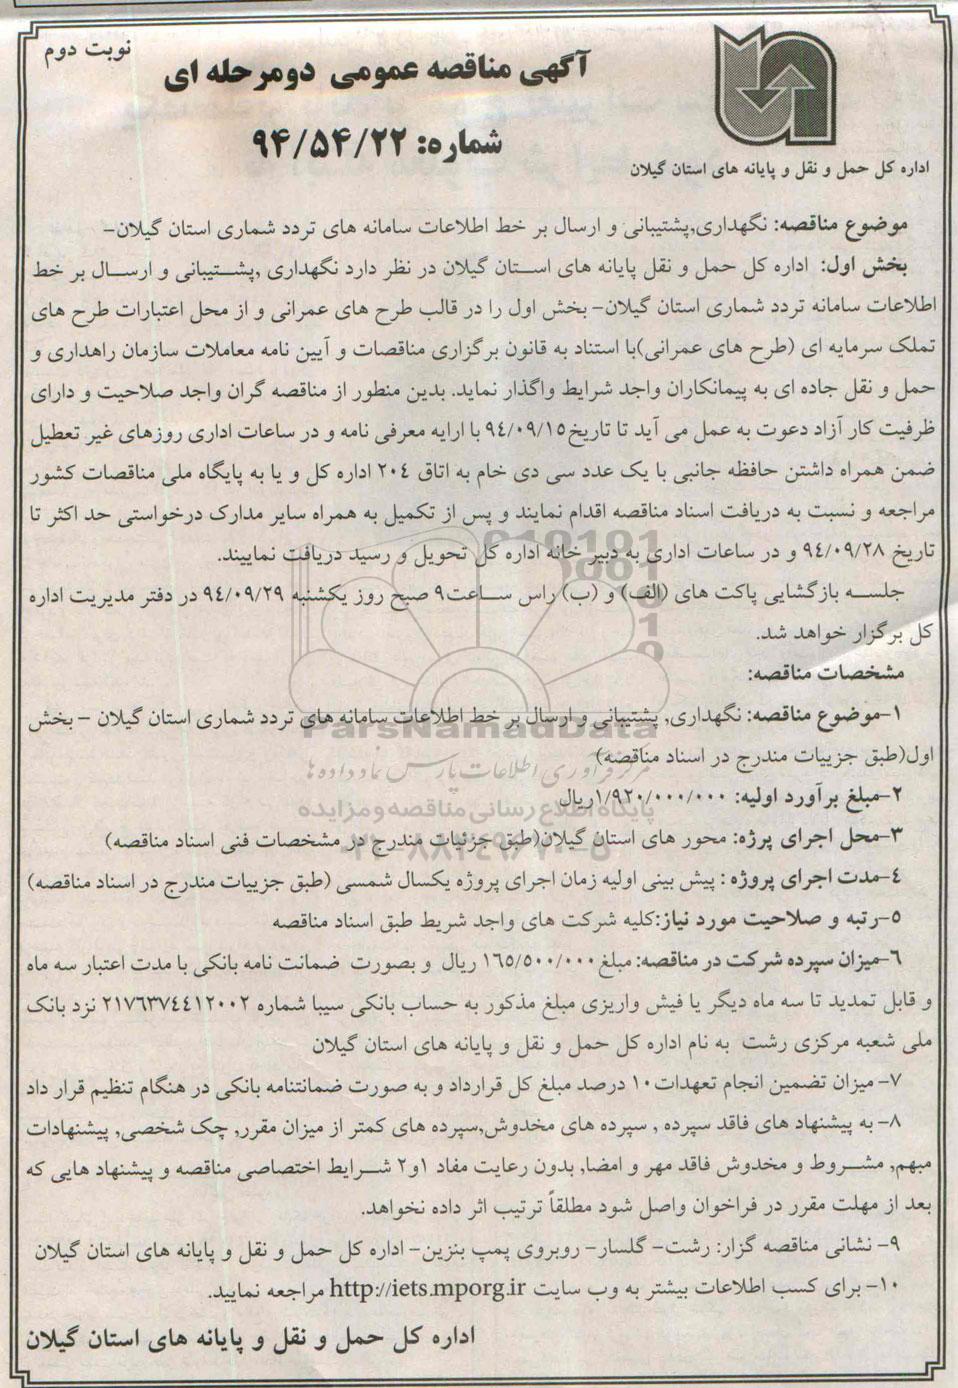 نوبت دوم
آگهی مناقصه عمومی دومرحله ای
شماره: ۹۴/۵۴/۲۲
اداره کل حمل و نقل و پایانه های استان گیلان
موضوع مناقصه: نگهداری,پشتیبانی و ارسال بر خط اطلاعات سامانه های تردد شماری استان گیلان–
بخش اول: اداره کل حمل و نقل پایانه های استان گیلان در نظر دارد نگهداری ,پشتیبانی و ارسال بر خط
اطلاعات سامانه تردد شماری استان گیلان– بخش اول را در قالب طرح های عمرانی و از محل اعتبارات طرح های
تملک سرمایه ای (طرح های عمرانی)با استناد به قانون برگزاری مناقصات و آیین نامه معاملات سازمان راهداری و
حمل و نقل جاده ای به پیمانکاران واجد شرایط واگذار نماید. بدین منظور از مناقصه گران واجد صلاحیت و دارای
ظرفیت کار آزاد دعوت به عمل می آید تا تاریخ۹٤/۰۹/۱٥ با ارایه معرفی نامه و در ساعات اداری روزهای غیر تعطیل
ضمن همراه داشتن حافظه جانبی با یک عدد سی دی خام به اتاق ۲۰٤ اداره کل و یا به پایگاه ملی مناقصات کشور
مراجعه و نسبت به دریافت اسناد مناقصه اقدام نمایند و پس از تکمیل به همراه سایر مدارک درخواستی حد اکثر تا
تاریخ ۹٤/۰۹/۲۸ و در ساعات اداری به دبیر خانه اداره کل تحویل و رسید دریافت نمایند.
جلسه بازگشایی پاکت های (الف) و (ب) راس ساعت۹ صبح روز یکشنبه ۹٤/۰۹/۲۹ در دفتر مدیریت اداره
کل برگزار خواهد شد.
مشخصات مناقصه:
۱–موضوع مناقصه: نگهداری, پشتیبانی و ارسال بر خط اطلاعات سامانه های تردد شماری استان گیلان – بخش
اول(طبق جزییات مندرج در اسناد مناقصه)
۲–مبلغ برآورد اولیه: ۱/۹۲۰/۰۰۰/۰۰۰ریال
۳–محل اجرای پرژه: محور های استان گیلان(طبق جزئیات مندرج در مشخصات فنی اسناد مناقصه)
٤–مدت اجرای پروژه : پیش بینی اولیه زمان اجرای پروژه یکسال شمسی (طبق جزییات مندرج در اسناد مناقصه)
٥–رتبه و صلاحیت مورد نیاز:کلیه شرکت های واجد شریط طبق اسناد مناقصه
٦–میزان سپرده شرکت در مناقصه: مبلغ ۱٦٥/٥۰۰/۰۰۰ ریال و بصورت ضمانت نامه بانکی با مدت اعتبار سه ماه
و قابل تمدید تا سه ماه دیگر یا فیش واریزی مبلغ مذکور به حساب بانکی سیبا شماره ۲۱۷٦۳۷٤٤۱۲۰۰۲ نزد بانک
ملی شعبه مرکزی رشت به نام اداره کل حمل و نقل و پایانه های استان گیلان
۷– میزان تضمین انجام تعهدات۱۰ درصد مبلغ کل قرارداد و به صورت ضمانتنامه بانکی در هنگام تنظیم قرار داد
۸– به پیشنهاد های فاقد سپرده , سپرده های مخدوش,سپرده های کمتر از میزان مقرر, چک شخصی, پیشنهادات
مبهم, مشروط و مخدوش فاقد مهر و امضا, بدون رعایت مفاد ۱و۲ شرایط اختصاصی مناقصه و پیشنهاد هایی که
بعد از مهلت مقرر در فراخوان واصل شود مطلقاً ترتیب اثر داده نخواهد.
۹– نشانی مناقصه گزار: رشت– گلسار– روبروی پمپ بنزین– اداره کل حمل و نقل و پایانه های استان گیلان
۱۰– برای کسب اطلاعات بیشتر به وب سایت http://iets.mporg.ir مراجعه نمایید.
اداره کل حمل و نقل و پایانه های استان گیلان
ParsNamadData
مرکز فرآوری اطلاعات پارس نماد داده ها
پایگاه اطلاع رسانی مناقصه و مزایده